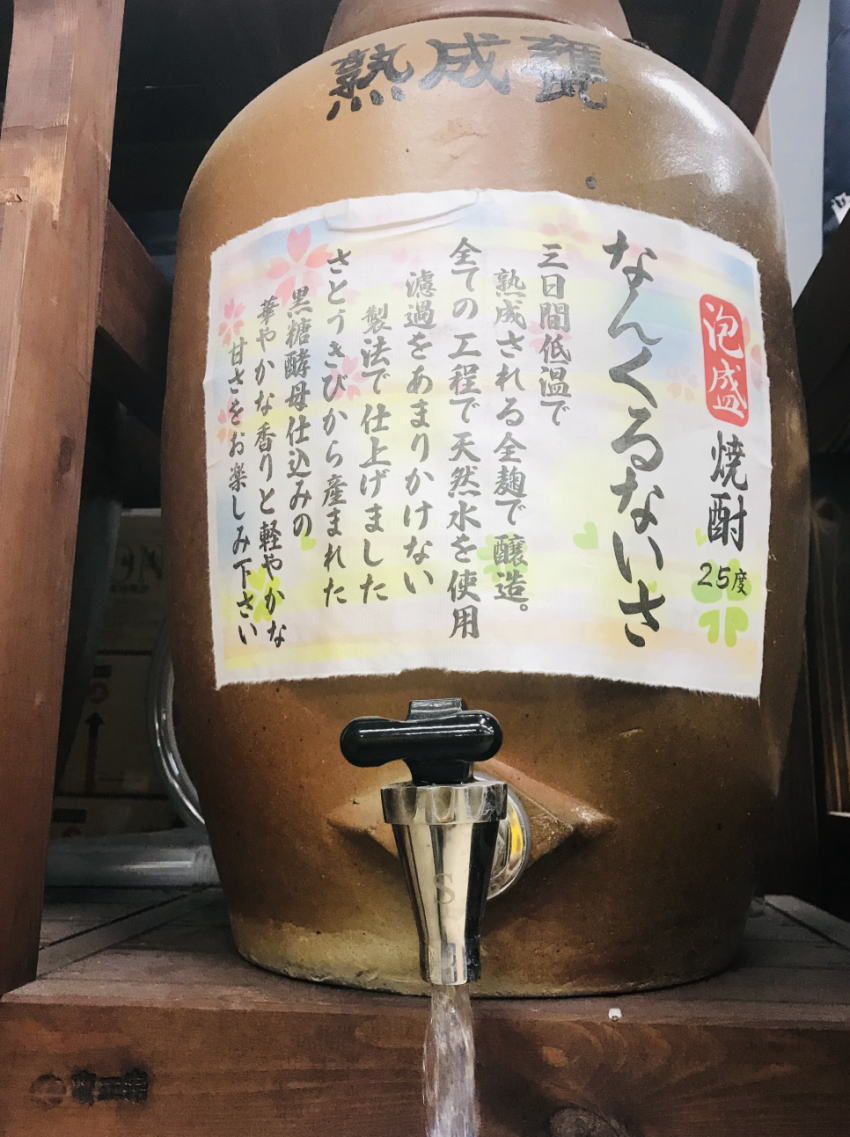 熟成甕
泡盛
焼酎
25度
なんくるないさ
三日間低温で
熟成される全麹で醸造。
全ての工程で天然水を使用
濾過をあまりかけない
製法で仕上げました
さとうきびから産まれた
黒糖酵母仕込みの
華やかな香りと軽やかな
甘さをお楽しみ下さい
S